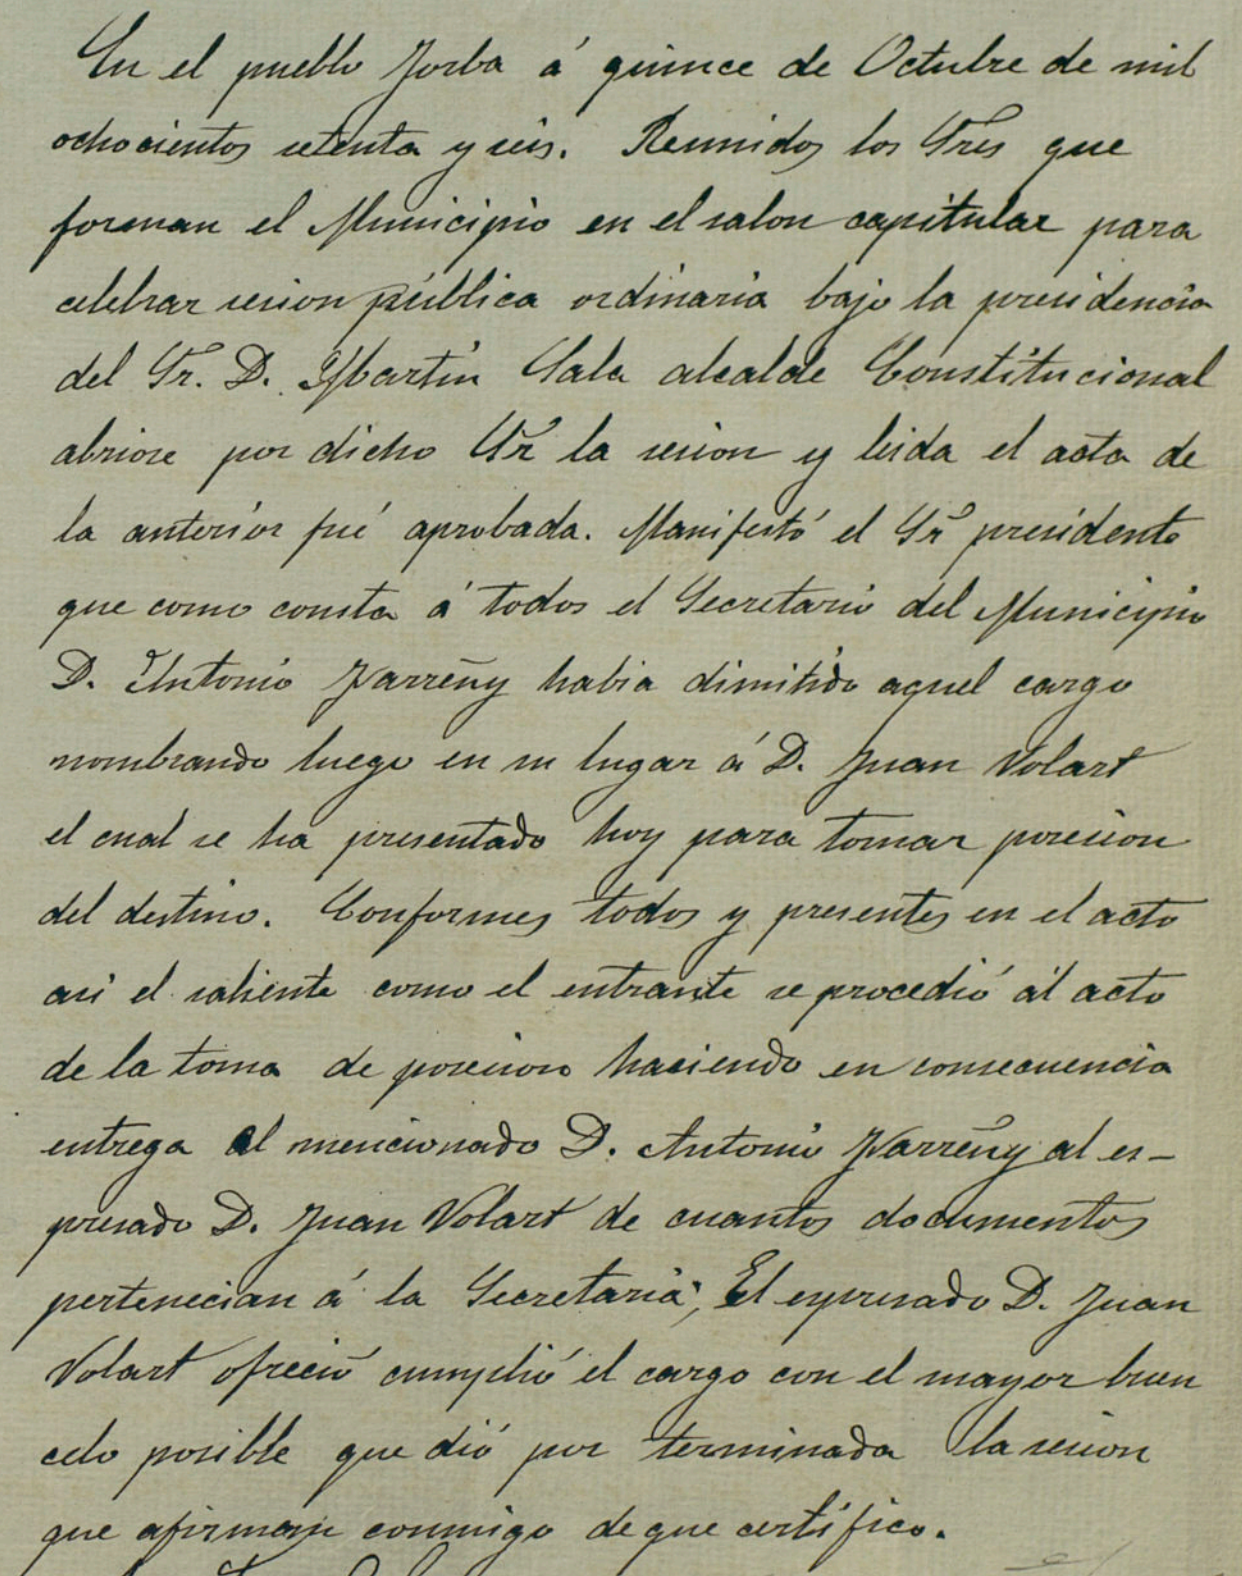 En el pueblo Jorba á quince de Octubre de mil
ochocientos setenta y seis. Reunidos los Sres que
forman el Municipio en el salon capitular para
celebrar sesion pública ordinaria bajo la presidencia
del Sr. D. Martin Sala alcalde Constitucional
abriose por dicho Sr la sesion y leida el acta de
la anterior fué aprobada. Manifestó el Sr presidente
que como consta á todos el Secretario del Municipio
D. Antonio Farreny habia dimitido aquel cargo
nombrando luego en su lugar á D. Juan Volart
el cual se ha presentado hoy para tomar posesion
del destino. Conformes todos y presentes en el acto
asi el saliente como el entrante se procedió al acto
de la toma de posesion haciendo en consecuencia
entrega el mencionado D. Antonio Farreny al es-
presado D. Juan Volart de cuantos documentos
pertenecian á la Secretaria, El espresado D. Juan
Volart ofreció cumplió el cargo con el mayor buen
celo posible que dió por terminada la sesion
que afirman conmigo de que certifico.